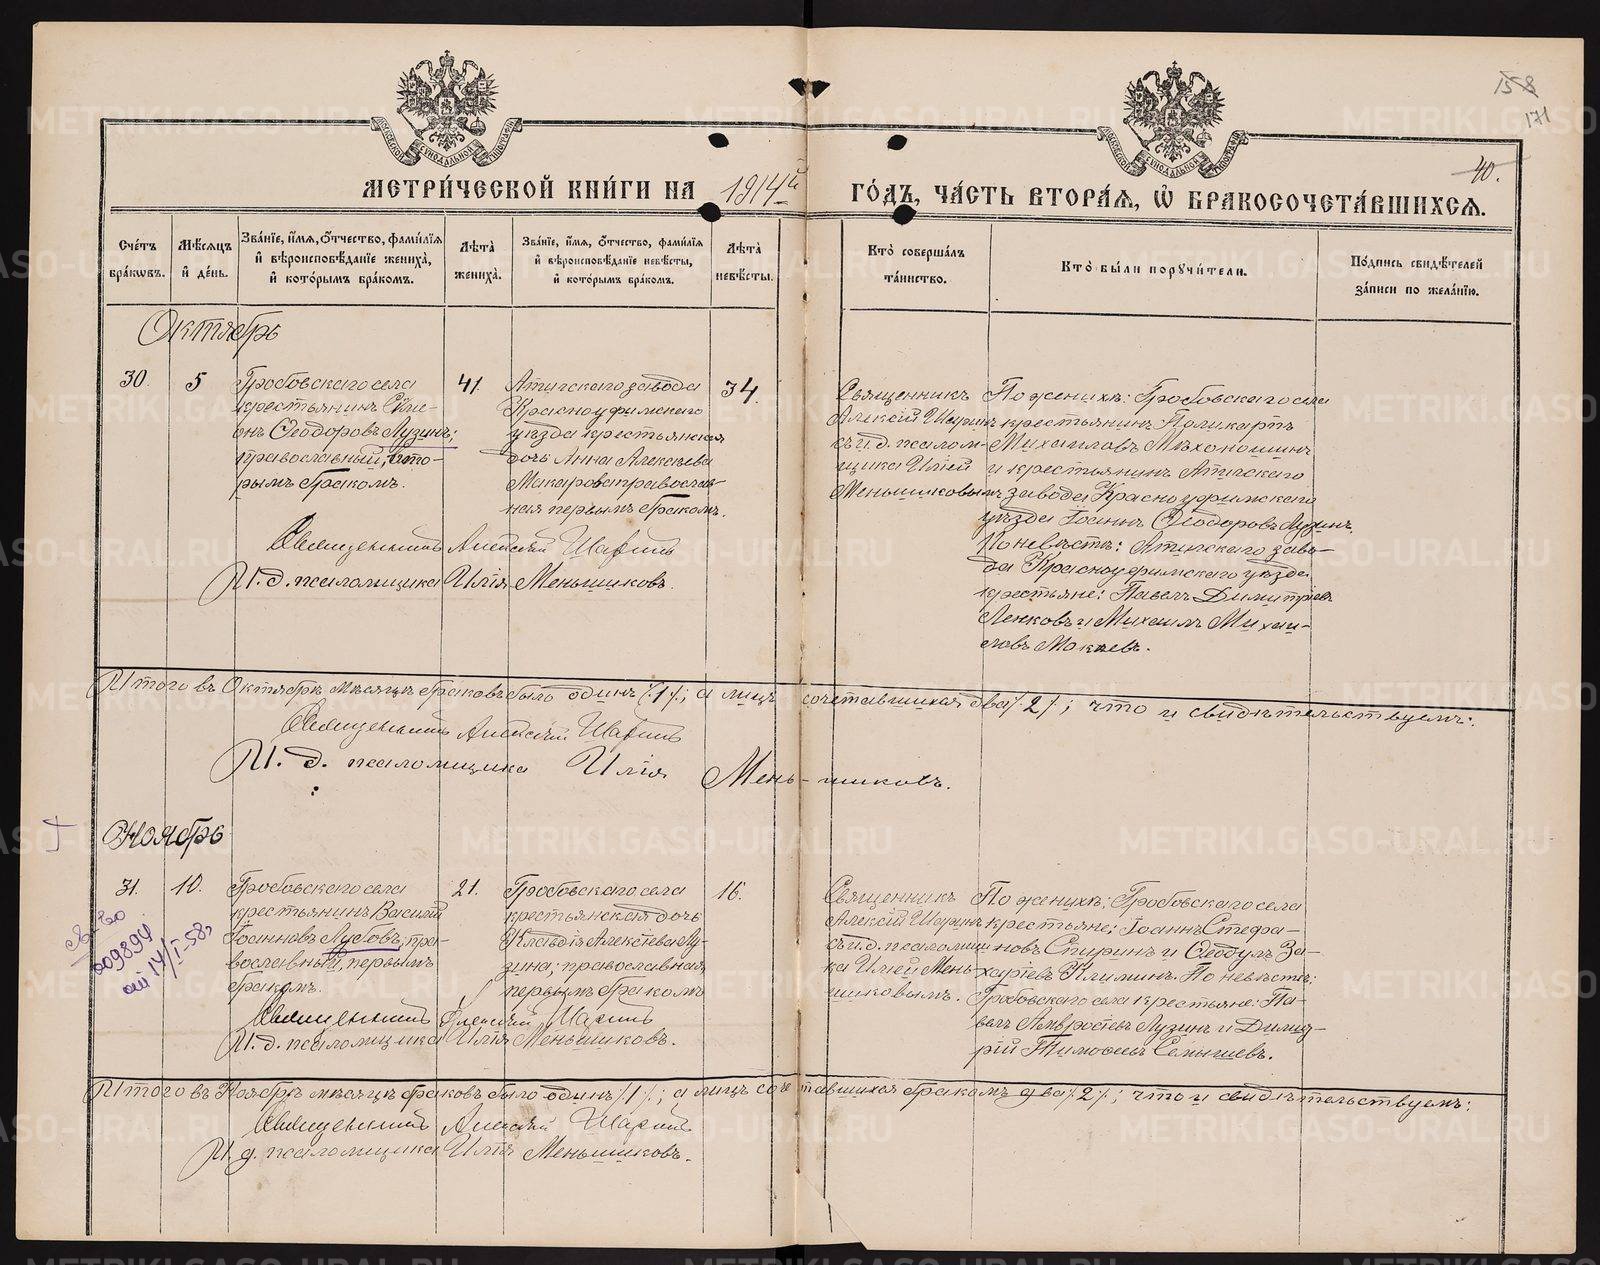 158
171
40.
МЕТРИ́ЧЕСКОЙ КНИ́ГИ НА 1914й ГО́ДЪ, ЧА́СТЬ ВТОРА́Я, Ѡ БРАКОСОЧЕТА́ВШИХСЯ.
Сче́тъ бра́кωвъ.
Мѣ́сяцъ и́ де́нь.
Зва́нїе, и́мѧ, ѻ́тчество, фами́лїѧ и́ вѣроисповѣ́данїе жениха̀, и́ кото́рымъ бра́комъ.
Лѣ́та̀ жениха̀.
Зва́нїе, и́мѧ, ѻ́тчество, фами́лїѧ и́ вѣроисповѣ́данїе невѣ́сты, и́ кото́рымъ бра́комъ.
Лѣ́та̀ невѣ́сты.
Кто̀ соверша́лъ та́инство.
Кто̀ бы́ли поручи́тели.
По́дпись свидѣ́телей за́писи по жела́нїю.
Октябрь
30.
5
Гробовскаго села
крестьянинъ Симе-
онъ Ѳеодоровъ Лузинъ;
православный, вто-
рымъ бракомъ.
41.
Атигскаго завода
Красноуфимскаго
уѣзда крестьянская
дочь Анна Алексѣева
Макарова православ-
ная первымъ бракомъ.
34.
Священникъ
Алексій Шаринъ
съ и.д. псалом-
щика Иліей
Меньшиковымъ
По женихѣ: Гробовскаго села
крестьянинъ Поликарпъ
Михаиловъ Мѣхоношинъ
и крестьянинъ Атигскаго
завода Красноуфимскаго
уѣзда Іоаннъ Ѳеодоровъ Лузинъ.
По невѣстѣ: Атигскаго заво-
да Красноуфимскаго уѣзда
крестьяне: Павелъ Димитріевъ
Ленковъ и Михаилъ Михаи-
ловъ Мокѣевъ.
Священникъ Алексій Шаринъ
И.д. псаломщика Илія Меньшиковъ.
Итого въ Октябрѣ мѣсяцѣ браковъ было одинъ /1/; а лицъ сочетавшихся два /2/; что и свидѣтельствуемъ:
Священникъ Алексій Шаринъ
И. д. псаломщика Илія Мень-шиковъ.
Ноябрь
31.
10.
Гробовскаго села
крестьянинъ Василій
Іоанновъ Лубовъ, пра-
вославный, первымъ
бракомъ.
21.
Гробовскаго села
крестьянская дочь
Клавдія Алексіева Лу-
зина; православная
первымъ бракомъ
16.
Священникъ
Алексій Шаринъ
съ и.д. псаломщи
ка Иліей Мень-
шиковымъ.
По женихѣ: Гробовскаго села
крестьяне: Іоаннъ Стефа-
новъ Спиринъ и Ѳеодулъ За-
харіевъ Климинъ. По невѣстѣ:
Гробовскаго села крестьяне: Па-
велъ Амвросіевъ Лузинъ и Дими-
рій Тимоѳеевъ Сенышевъ.
св-во
209894
от 14/I-58г
Священникъ Алексій Шаринъ
И.д. псаломщика Илія Меньшиковъ.
Итого въ Ноябрѣ мѣсяцѣ браковъ было одинъ /1/; а лицъ сочетавшихся бракомъ два /2/; что и свидѣтельствуемъ:
Священникъ Алексій Шаринъ
И. д. псаломщика Илія Меньшиковъ.
METRIKI.GASO-URAL.RU